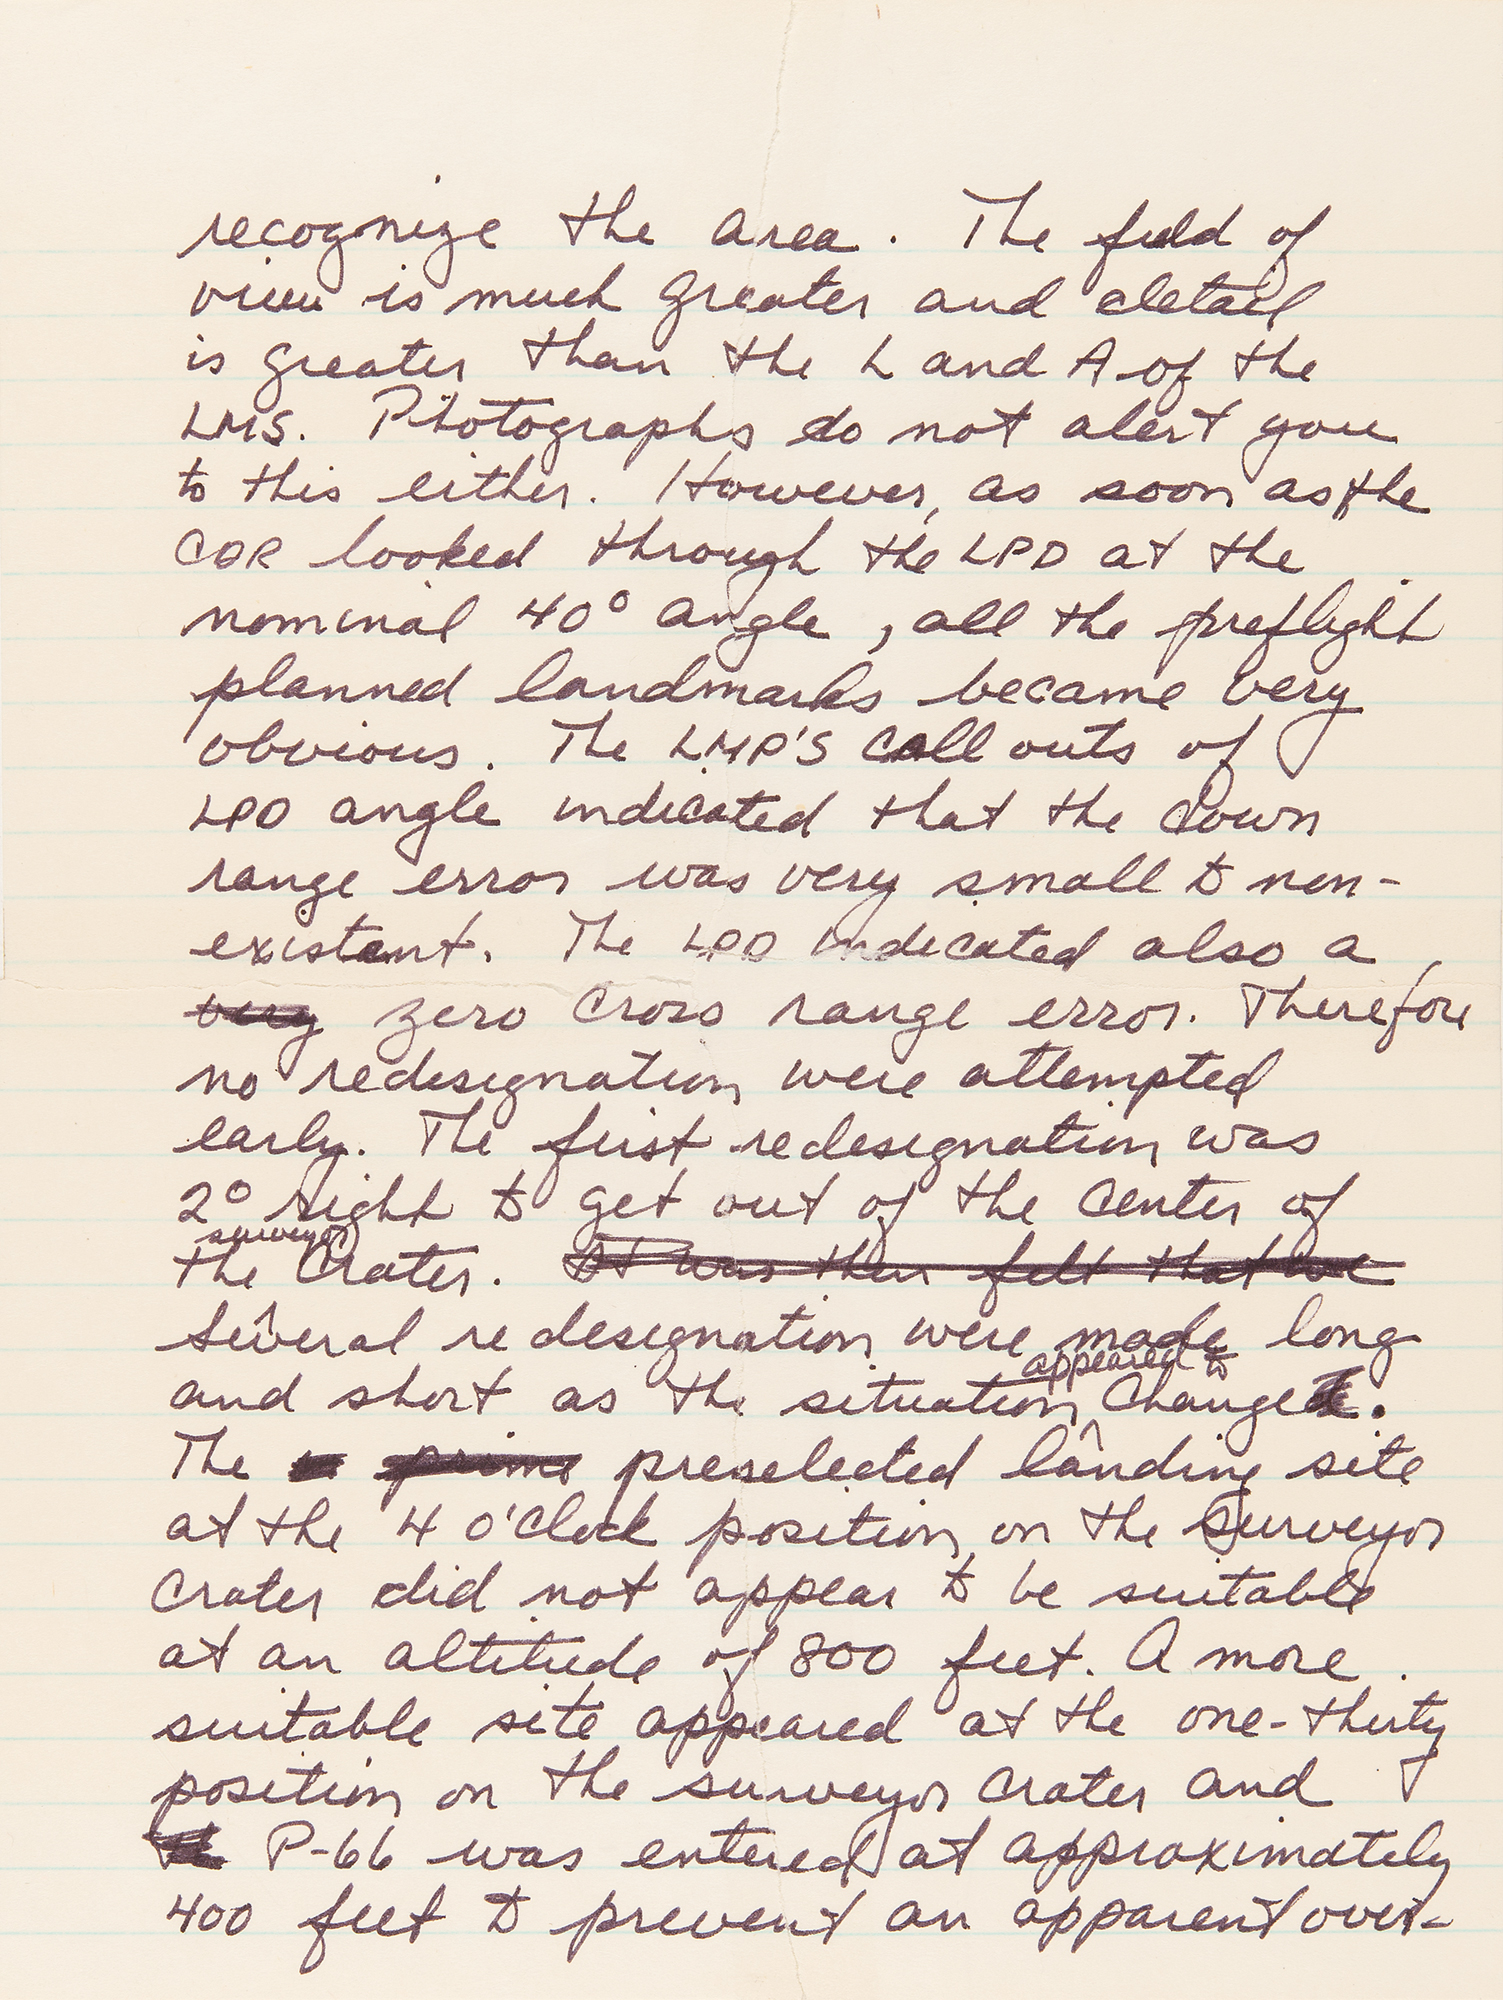 recognize the area. The field of
view is much greater and detail
is greater than the L and A of the
LMS. Photographs do not alert you
to this either. However, as soon as the
CDR looked through the LPD at the
nominal 40° angle, all the preflight
planned landmarks became very
obvious. The LMP'S call outs of
LPD angle indicated that the down
range error was very small to non-
existent. The LPD indicated also a
very zero cross range error. Therefore
no redesignation were attempted
early. The first redesignation was
2° right to get out of the center of
surveyor
the Crater. It was then felt that we
Several redesignation were made long
appeared to
and short as the situation change.
The prime preselected landing site
at the 4 o'clock position on the Surveyor
Crater did not appear to be suitable
at an altitude of 800 feet. A more
suitable site appeared at the one-thirty
position on the surveyor crater and
P-66 was entered at approximately
400 feet to prevent an apparent over-